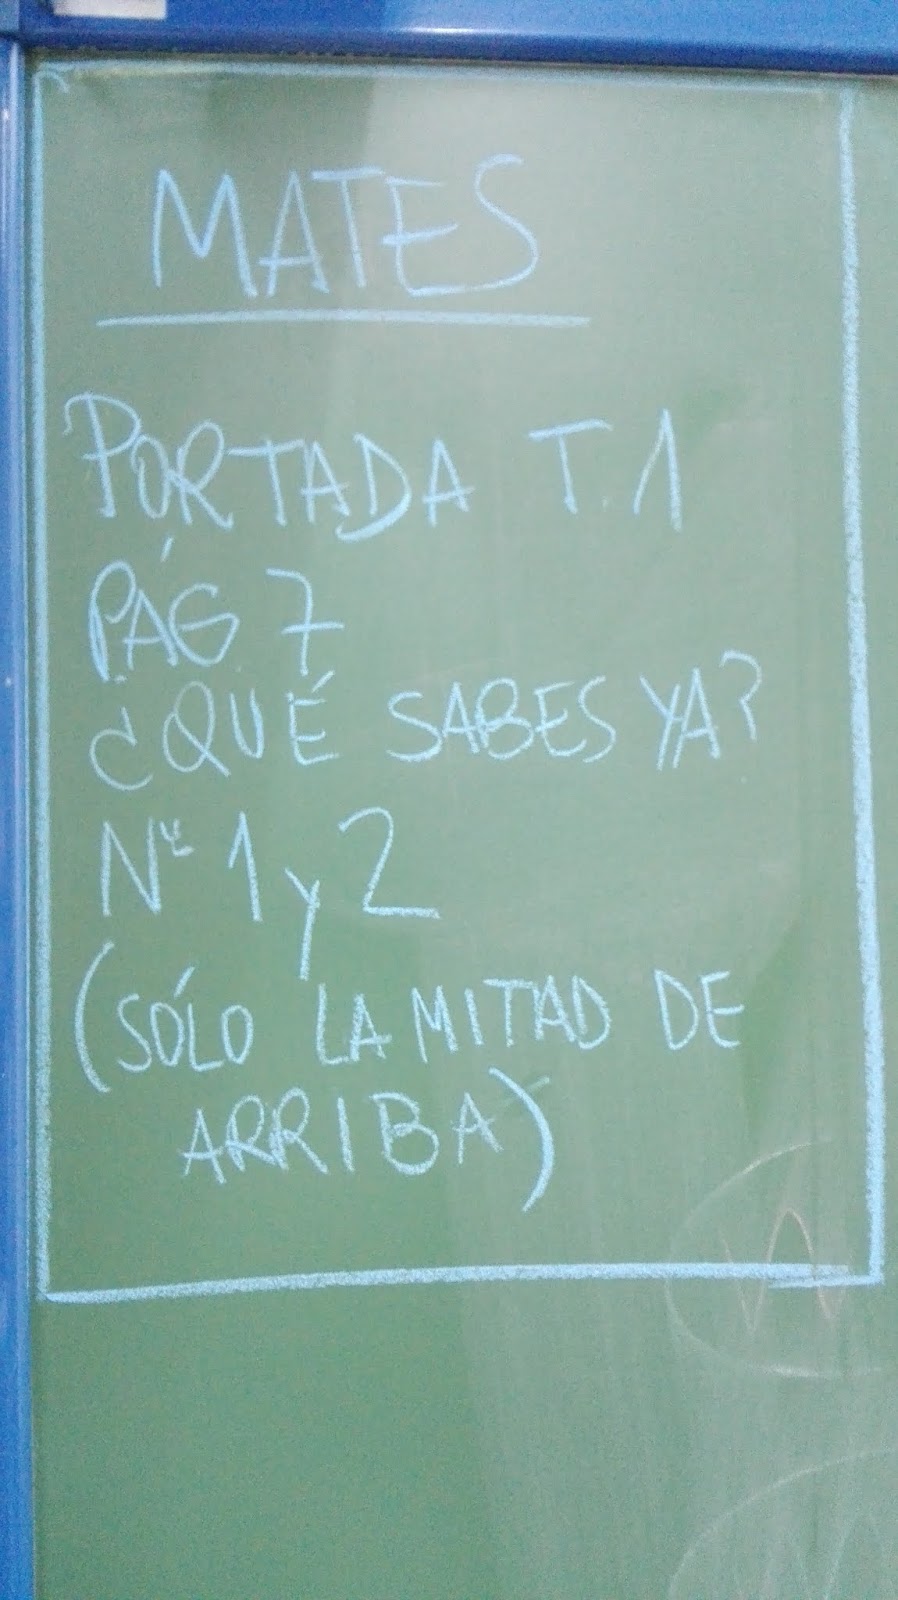 MATES
PORTADA T.1
PÁG. 7
¿QUÉ SABES YA?
Nº 1 y 2
(SÓLO LA MITAD DE
ARRIBA)